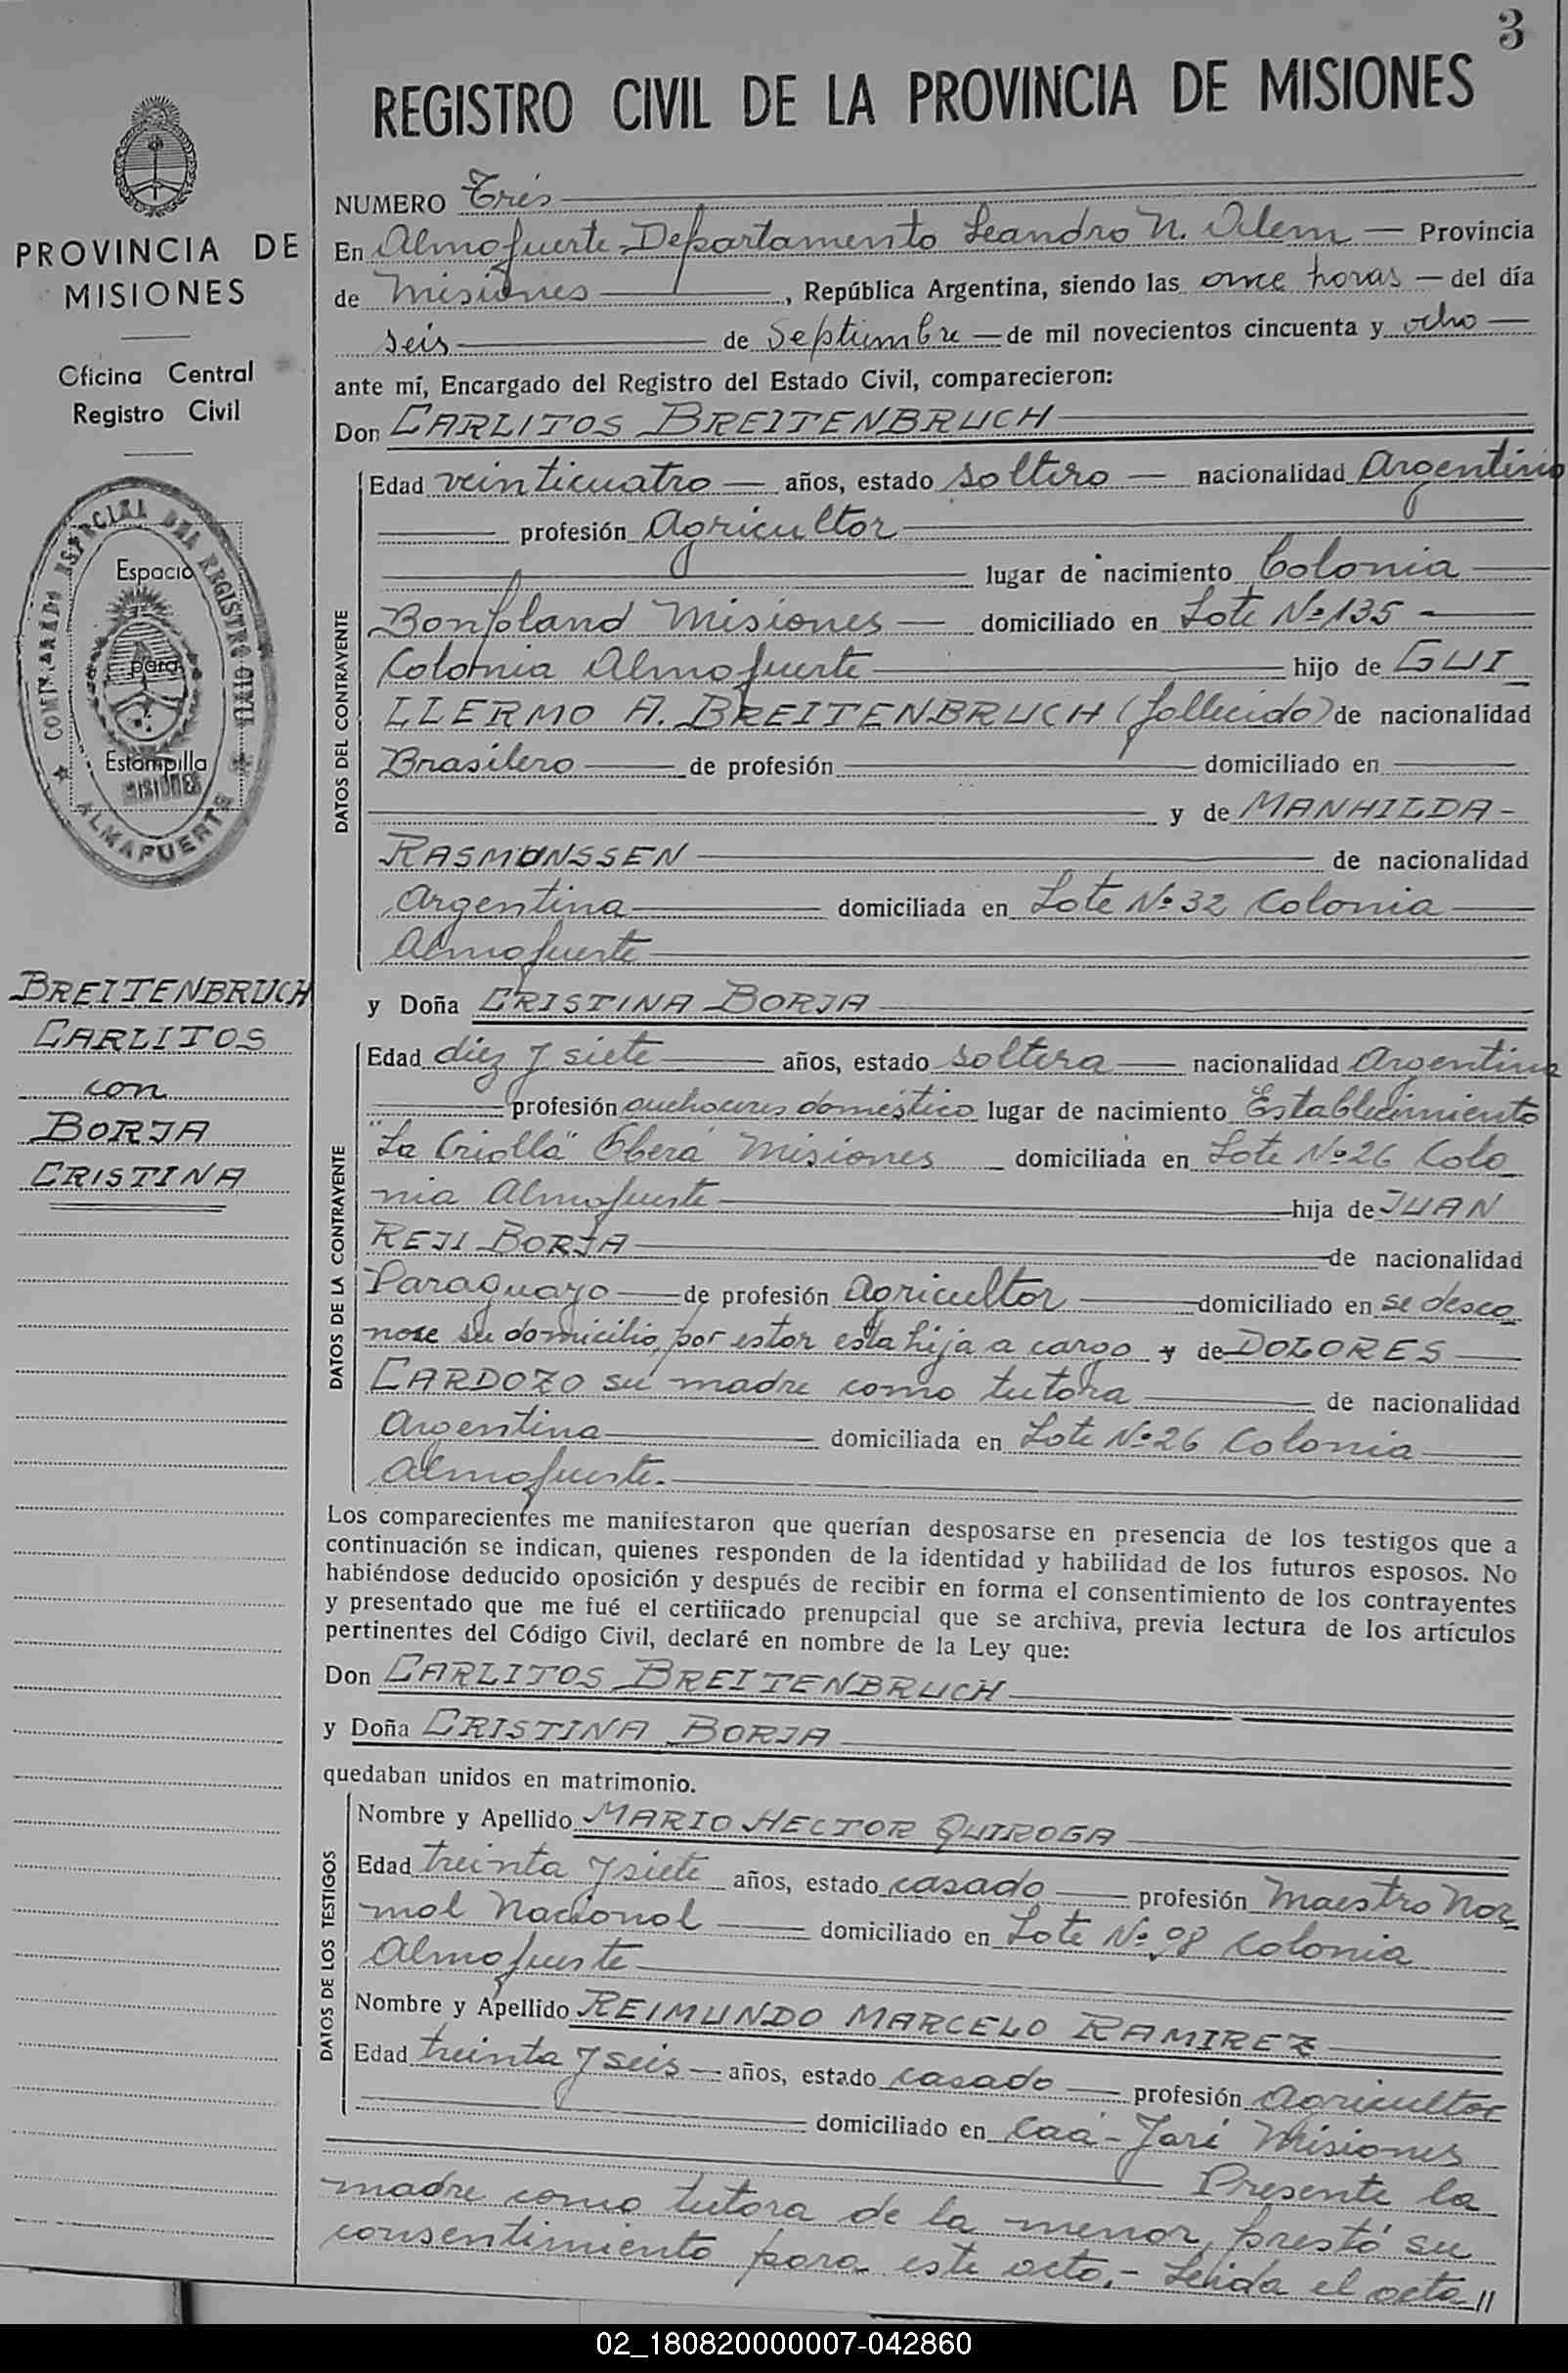 3
REGISTRO CIVIL DE LA PROVINCIA DE MISIONES
PROVINCIA DE
MISIONES
Oficina Central
Registro Civil
Espacio
para
Estampilla
MISIONES
REGISTRO CIVIL
ALMAFUERTE
BREITENBRUCH
CARLITOS
con
BORJA
CRISTINA
NUMERO Tres
En Almafuerte Departamento Leandro N. Alem — Provincia
de Misiones, República Argentina, siendo las once horas — del día
seis de Septiembre — de mil novecientos cincuenta y ocho —
ante mí, Encargado del Registro del Estado Civil, comparecieron:
Don CARLITOS BREITENBRUCH
DATOS DEL CONTRAYENTE
Edad veinticuatro — años, estado soltero — nacionalidad Argentino
profesión Agricultor
lugar de nacimiento Colonia
Bonpland Misiones — domiciliado en Lote Nº 135 —
Colonia Almafuerte hijo de GUI
LLERMO A. BREITENBRUCH (fallecido) de nacionalidad
Brasilero de profesión domiciliado en
y de MANHILDA -
RASMUNSSEN de nacionalidad
Argentina domiciliada en Lote Nº 32 Colonia
Almafuerte
y Doña CRISTINA BORJA
DATOS DE LA CONTRAYENTE
Edad diez y siete años, estado soltera — nacionalidad Argentina
profesión quehaceres doméstico lugar de nacimiento Establecimiento
"La Criolla" Oberá Misiones domiciliada en Lote Nº 26 Colo
nia Almafuerte hija de JUAN
REJI BORJA de nacionalidad
Paraguayo de profesión Agricultor domiciliado en se desco
noce su domicilio, por estar esta hija a cargo y de DOLORES
CARDOZO su madre como tutora de nacionalidad
Argentina domiciliada en Lote Nº 26 Colonia
Almafuerte.
Los comparecientes me manifestaron que querían desposarse en presencia de los testigos que a
continuación se indican, quienes responden de la identidad y habilidad de los futuros esposos. No
habiéndose deducido oposición y después de recibir en forma el consentimiento de los contrayentes
y presentado que me fué el certificado prenupcial que se archiva, previa lectura de los artículos
pertinentes del Código Civil, declaré en nombre de la Ley que:
Don CARLITOS BREITENBRUCH
y Doña CRISTINA BORJA
quedaban unidos en matrimonio.
DATOS DE LOS TESTIGOS
Nombre y Apellido MARIO HECTOR QUIROGA
Edad treinta y siete años, estado casado profesión Maestro Nor
mal Nacional domiciliado en Lote Nº 98 Colonia
Almafuerte
Nombre y Apellido REIMUNDO MARCELO RAMIREZ
Edad treinta y seis — años, estado casado — profesión Agricultor
domiciliado en Caá-Yarí Misiones
Presente la
madre como tutora de la menor, prestó su
consentimiento para este acto.- Leída el acta //
02_180820000007-042860